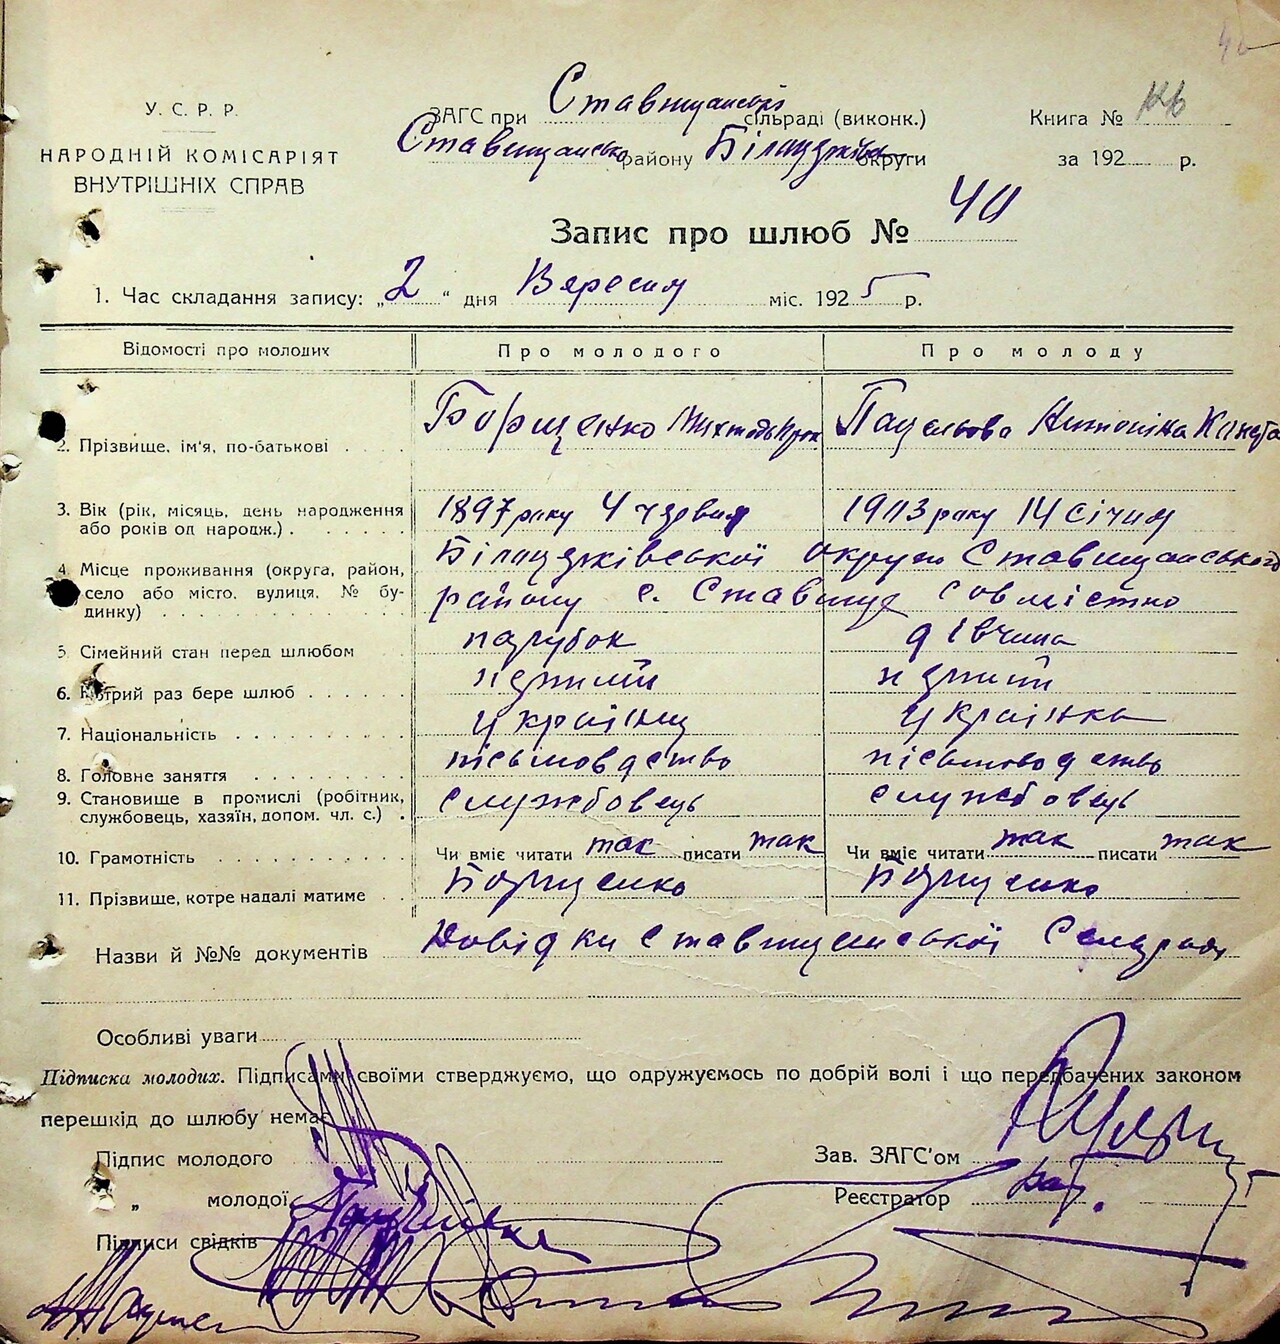 У.С.Р.Р.
НАРОДНІЙ КОМІСАРІЯТ
ВНУТРІШНІХ СПРАВ
ЗАГС при Ставищанській сільраді (виконк.)
району округи
Книга №
за 192 р.
Запис про шлюб № 40
1. Час складання запису: „2“ дня Вересня міс. 1925 р.
Відомості про молодих Про молодого Про молоду
2. Прізвище, ім'я, по-батькові
Борщенко Антоніна
3. Вік (рік, місяць, день народження або років од народж.)
1897 року 4 червня 1903 року 14 січня
4. Місце проживання (округа, район, село або місто, вулиця, № будинку)
Білоцерківської округи Ставищанського
району с. Ставище совмістно
5. Сімейний стан перед шлюбом парубок дівчина
6. Котрий раз бере шлюб перший перший
7. Національність українец українка
8. Головне заняття письмовдство письмоводство
9. Становище в промислі (робітник, службовець, хазяїн, допом. чл. с.) службовець службовець
10. Грамотність Чи вміє читати так писати так Чи вміє читати так писати так
11. Прізвище, котре надалі матиме Борщенко Борщенко
Назви й №№ документів Довідки Ставищанської Сельради
Особливі уваги
Підписка молодих. Підписами своїми стверджуємо, що одружуємось по добрій волі і що передбачених законом
перешкід до шлюбу немає
Підпис молодого Зав. ЗАГС'ом
„ молодої Реєстратор
Підписи свідків